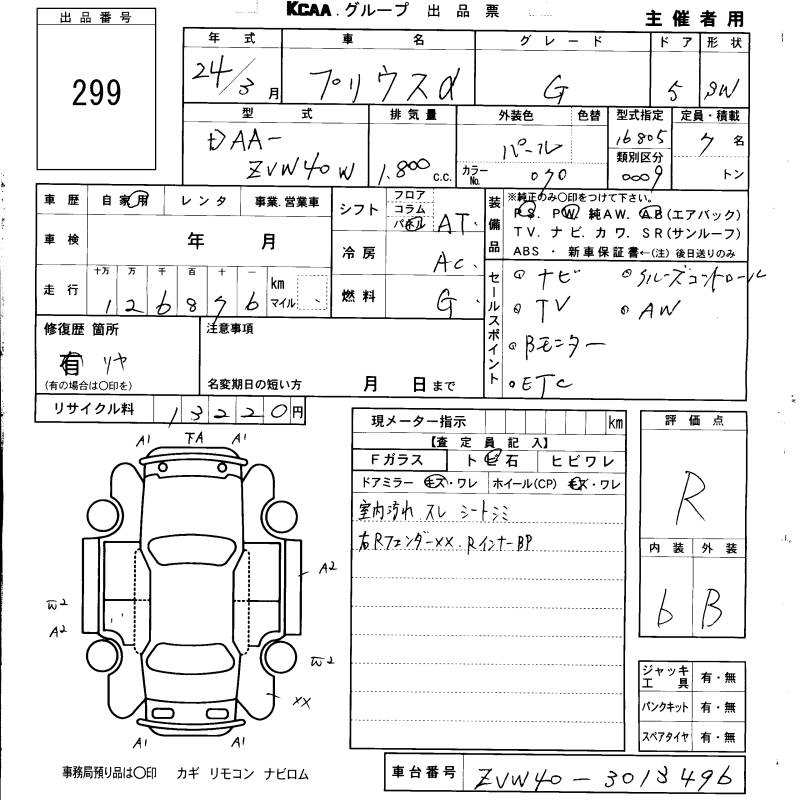 KCAA グループ 出品票
主催者用
出品番号
299
年式 車名 グレード ドア 形状
24/3月 プリウスα G 5 SW
型式 排気量 外装色 色替 型式指定 定員・積載
DAA-
ZVW40W 1.800 c.c. パール 16805 7名
カラーNo. 070 類別区分 0009 トン
車歴 自家用 レンタ 事業.営業車
車検 年 月
走行 十万 万 千 百 十 一 km マイル
1 2 6 8 7 6
シフト フロア コラム パネル AT.
冷房 AC.
燃料 G.
装備品
※純正のみ○印をつけて下さい。
PS. PW. 純AW. AB(エアバック)
TV. ナビ. カワ. SR(サンルーフ)
ABS ・ 新車保証書←(注) 後日送りのみ
セールスポイント
ナビ クルーズコントロール
TV AW
Bモニター
ETC
修復歴 箇所
有 リヤ
(有の場合は○印を)
注意事項
名変期日の短い方 月 日まで
リサイクル料 13220円
現メーター指示 km
【査定員記入】
Fガラス トビ石 ヒビワレ
ドアミラー キズ・ワレ ホイール(CP) キズ・ワレ
室内汚れ スレ シートシミ
右Rフェンダー××. RインナーBP
評価点
R
内装 外装
6 B
ジャッキ工具 有・無
パンクキット 有・無
スペアタイヤ 有・無
A1 TA A1
A2
W2
A2
W2
XX
A1 A1
事務局預り品は○印 カギ リモコン ナビロム
車台番号 ZVW40-3013496